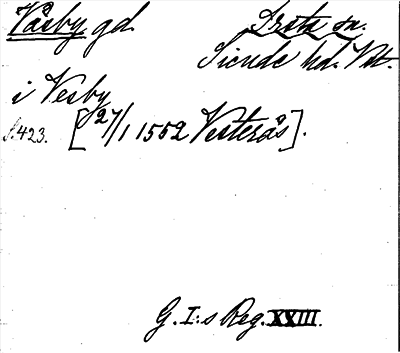 Väsby gd.
Irsta sn.
Siende hd. Vstm.
i Vesby
s. 423. [27/1 1552 Vesterås].
G. I:s Reg. XXIII.